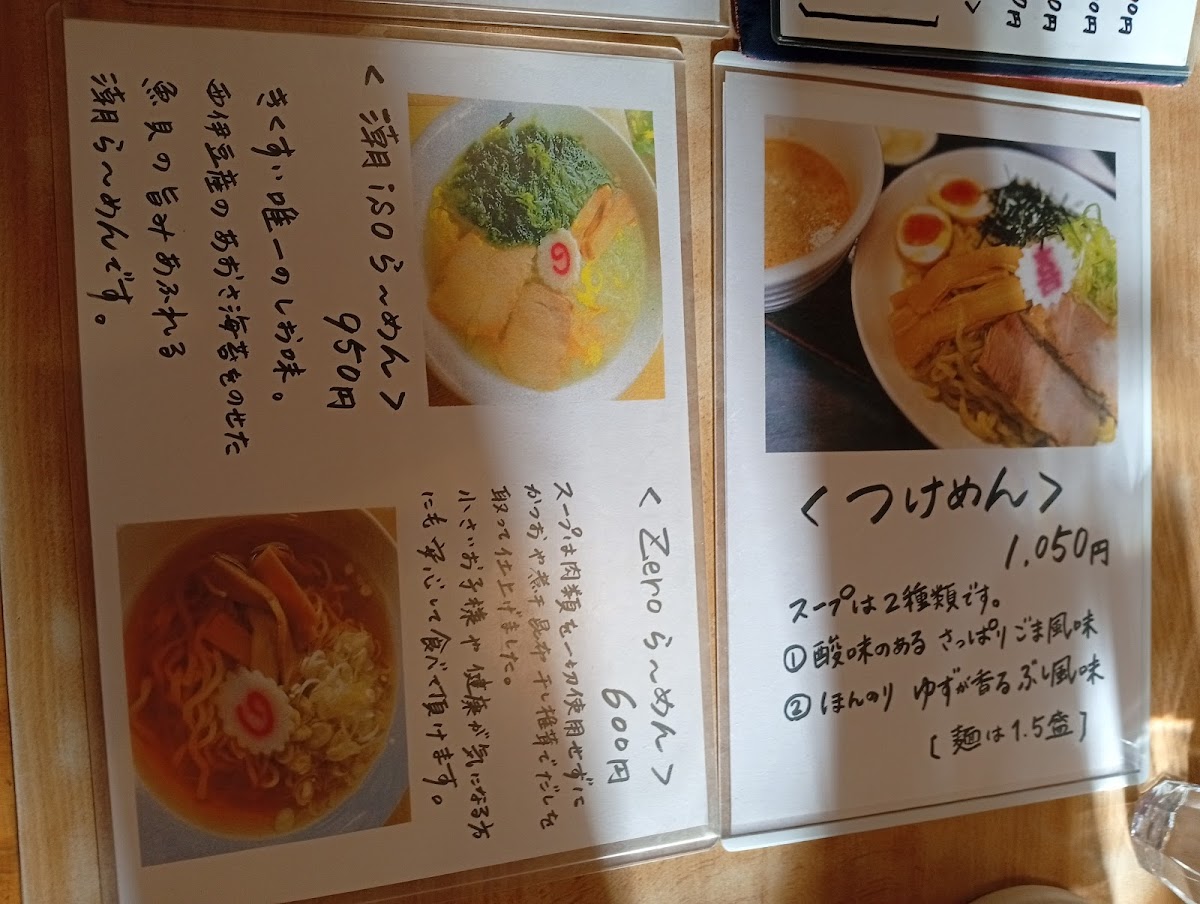 <潮isoら〜めん>
950円
きくすい唯一のしお味。
西伊豆産のあおさ海苔をのせた
魚貝の旨みあふれる
潮ら〜めんです。
<Zeroら〜めん>
600円
スープは肉類を一切使用せずに
かつおや煮干昆布干し椎茸でだしを
取って仕上げました。
小さいお子様や健康が気になる方
にも安心して食べて頂けます。
<つけめん>
1.050円
スープは2種類です。
①酸味のある さっぱりごま風味
②ほんのり ゆずが香るぶし風味
[麺は1.5盛]
00円
00円
0円
0円